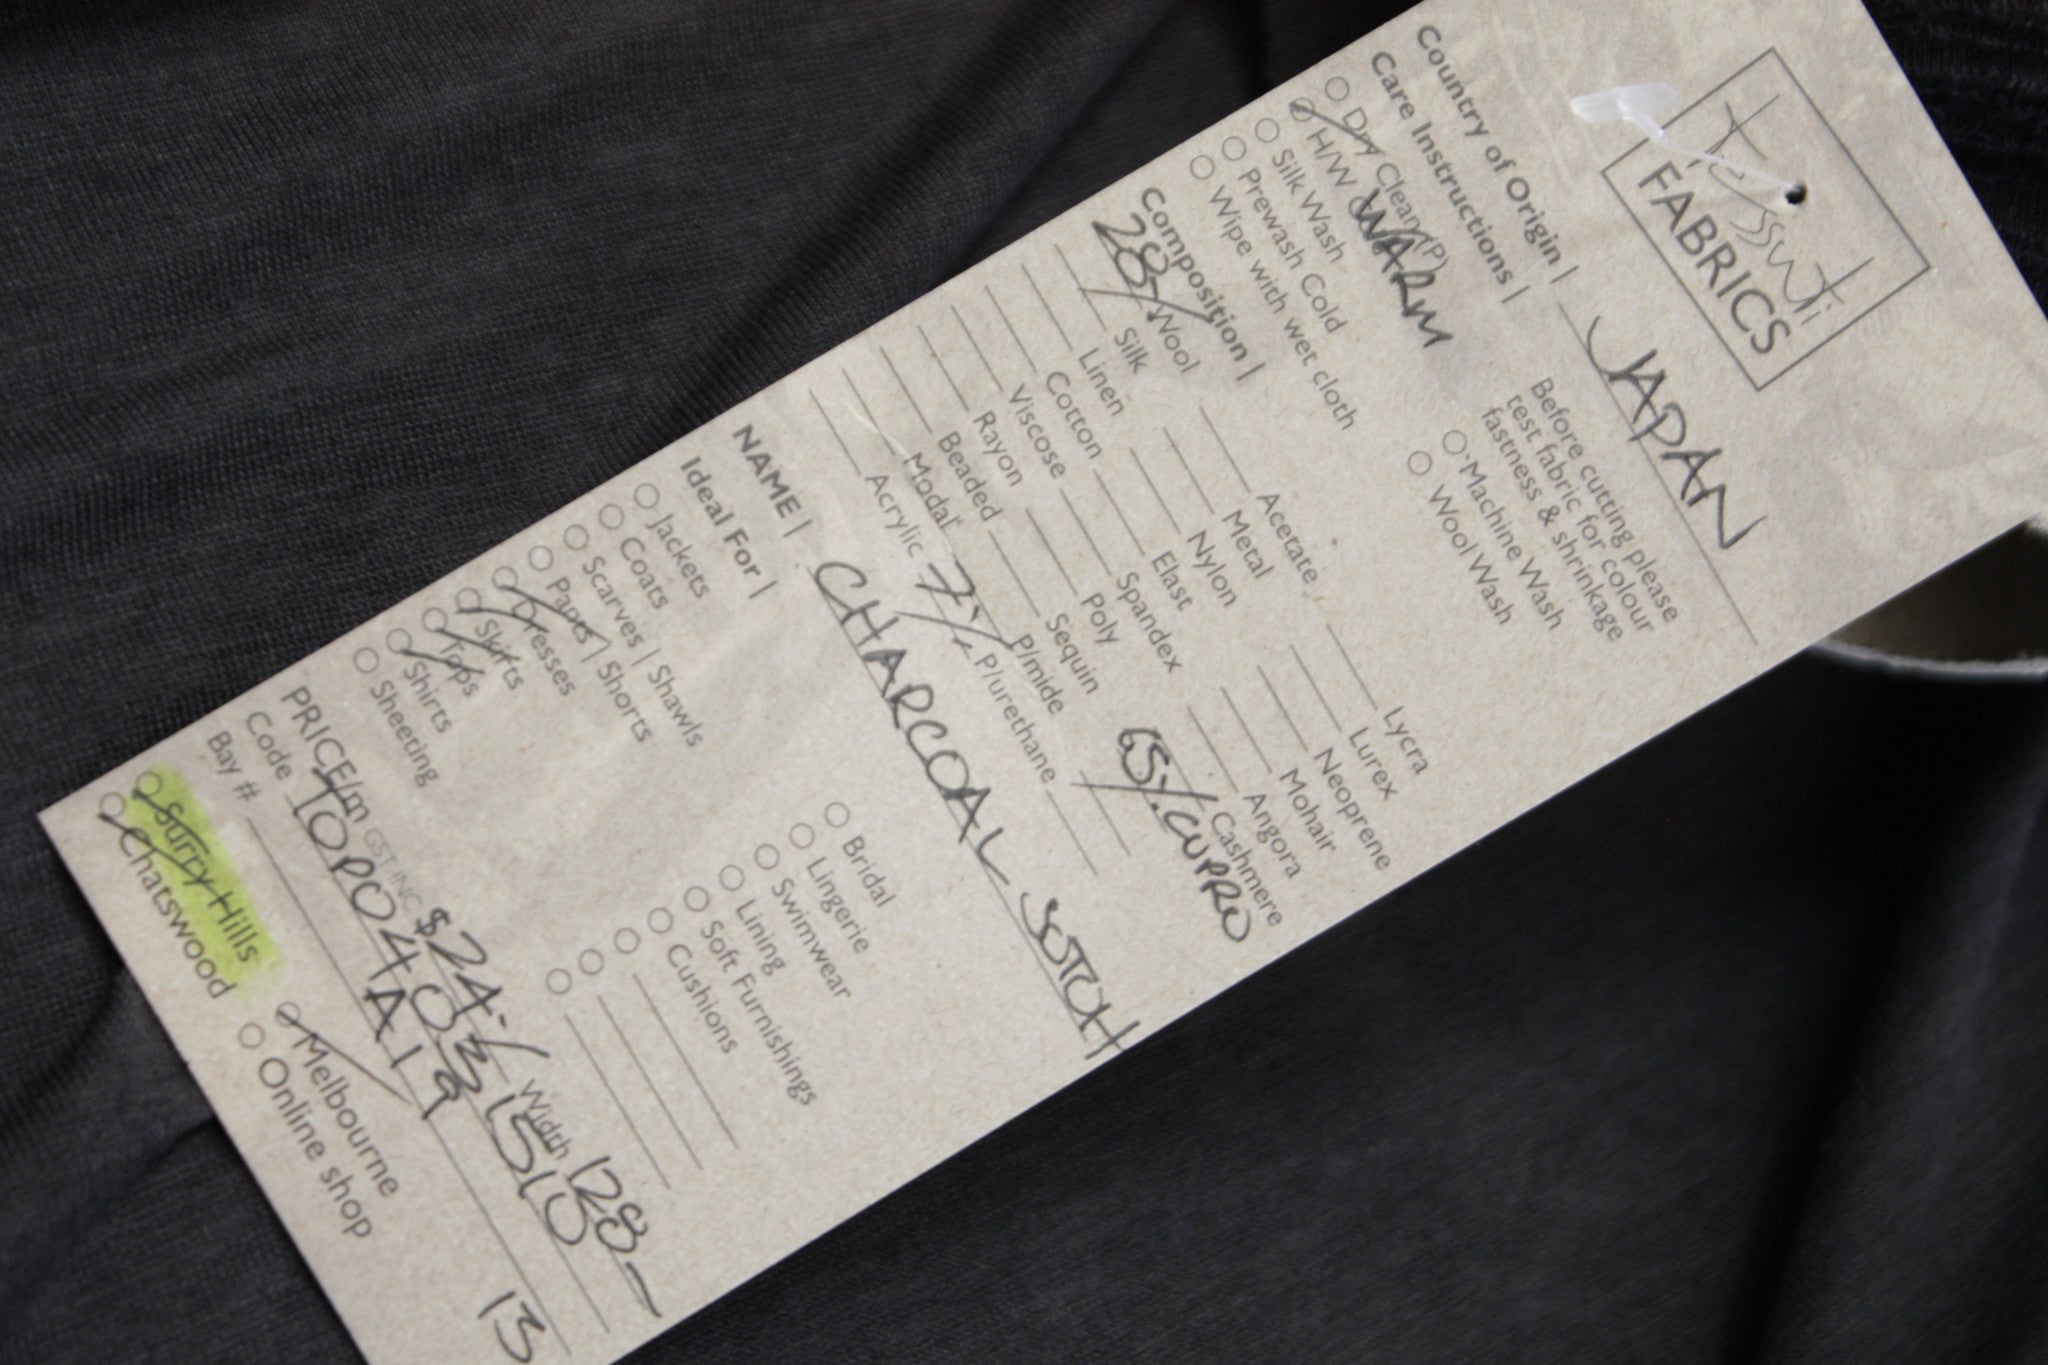 tessuti
FABRICS
Country of Origin | JAPAN
Care Instructions |
Dry Clean (P)
H/W WARM
Silk Wash
Prewash Cold
Wipe with wet cloth
Before cutting please
test fabric for colour
fastness & shrinkage
Machine Wash
Wool Wash
Composition |
28% Wool
Silk
Linen
Cotton
Viscose
Rayon
Beaded
Modal
Acrylic
Acetate
Metal
Nylon
Elast
Spandex
Poly
Sequin
P/mide
7% P/urethane
Lycra
Lurex
Neoprene
Mohair
Angora
Cashmere
65% CUPRO
NAME | CHARCOAL
Ideal For |
Jackets
Coats
Scarves | Shawls
Pants | Shorts
Dresses
Skirts
Tops
Shirts
Sheeting
Bridal
Lingerie
Swimwear
Lining
Soft Furnishings
Cushions
PRICE/m GST INC $24 Width 128
Code
Bay # 13
Surry Hills
Chatswood
Melbourne
Online shop